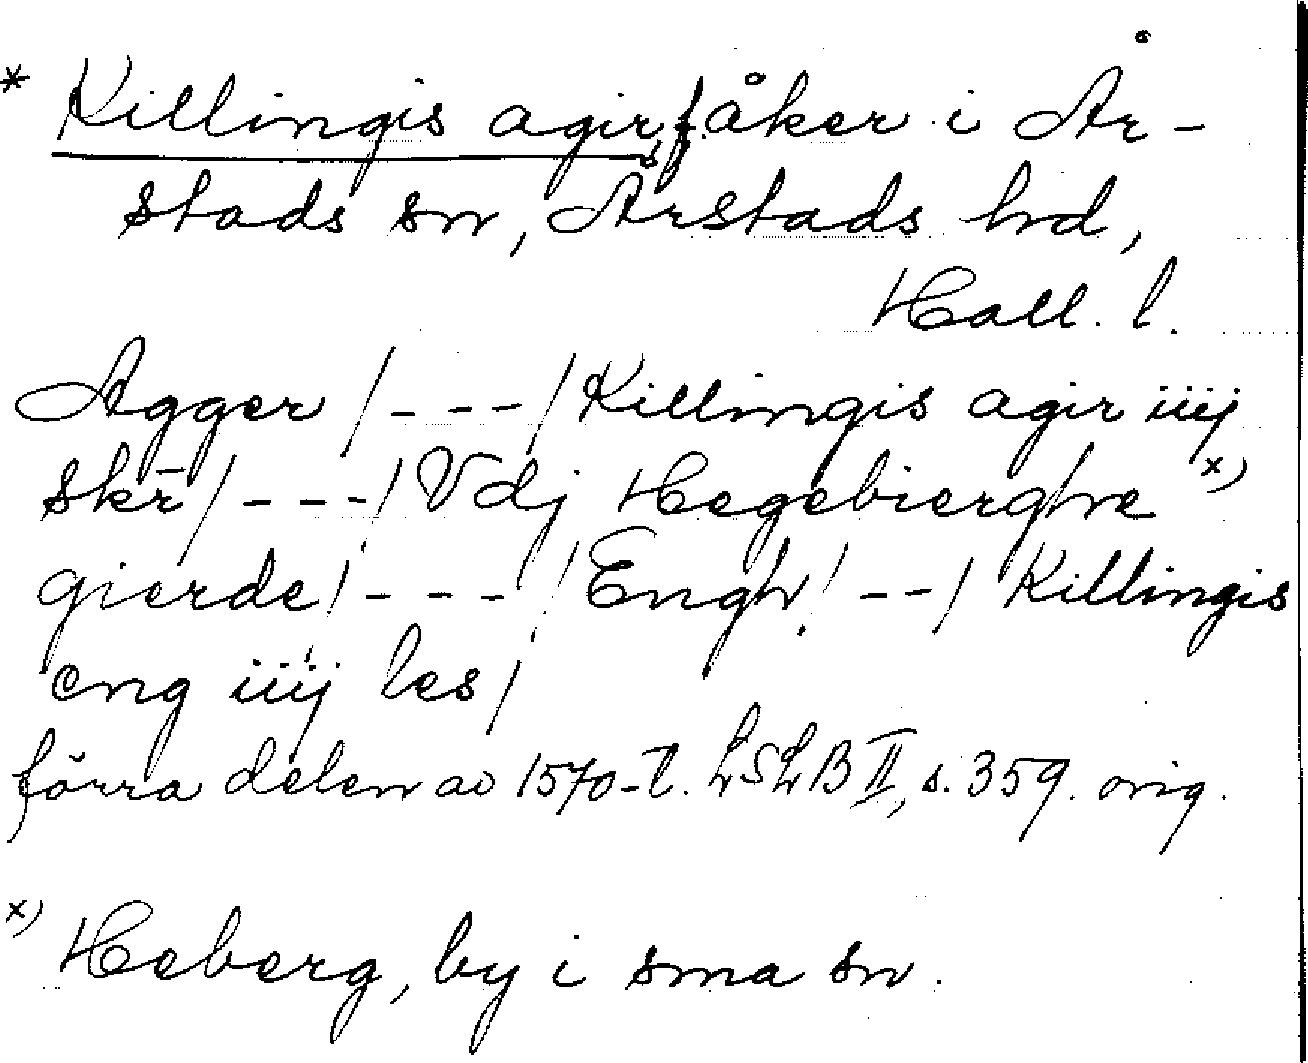 * Killingis agir, f. åker i År-
stads sn, Årstads hd,
Hall. l.
Agger /- - -/ Killingis agir iiij
skr̄ /- - -/ Vdj Hegebierghe x)
gierde /- - -/ Engh /- -/ Killingis
eng iiij les/
förra delen av 1570-t. LSLB II, s. 359. orig.
x) Heberg, by i sma sn.